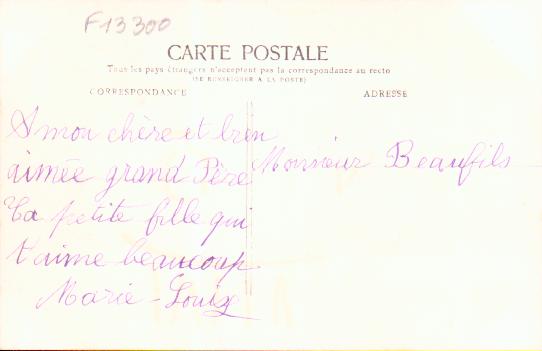 F13300
CARTE POSTALE
Tous les pays étrangers n'acceptent pas la correspondance au recto
(SE RENSEIGNER A LA POSTE)
CORRESPONDANCE
ADRESSE
A mon chère et bien
aimée grand Père
Ta petite fille qui
t'aime beaucoup
Marie-Louise
Monsieur Beaufils